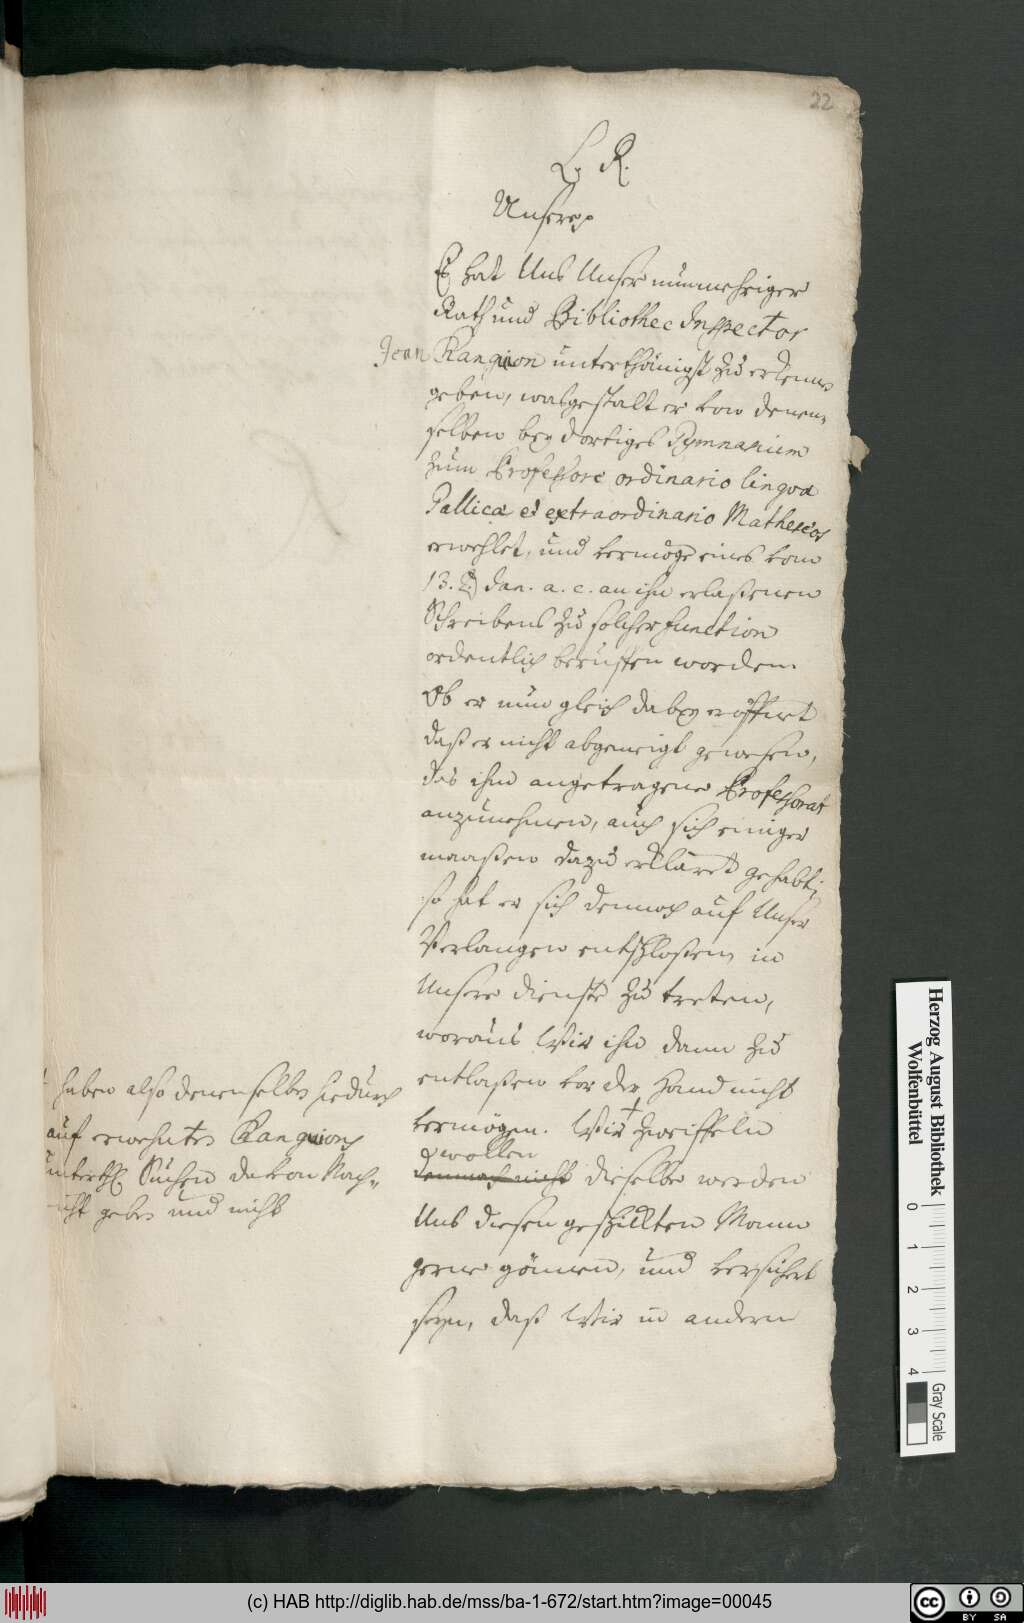 22
L. R.
Unsere p
Es hat Uns Unser nunmehriger
Rath und Bibliothec Inspector
Jean Ranquion unterthänigst zu erkennen
geben, wasgestalt er von denen-
selben bey dortiges Gymnasium
zum Professore ordinario linguæ
Gallicæ et extraordinario Matheseos
erwehlet, und vermöge eines vom
13. Jan. a. c. an ihn erlaßenen
Schreibens zu solcher function
ordentlich beruffen worden.
Ob er nun gleich dabey eröffnet
daß er nicht abgeneigt gewesen,
das ihm angetragene Professorat
anzunehmen, auch sich einiger
maaßen dazu erkläret gehabt;
so hat er sich dennoch auf Unser
Verlangen entschloßen, in
Unsere dienste zu treten,
woraus Wir ihn dann zu
entlaßen vor der Hand nicht
vermögen. Wir † zweiffeln
wollen
dennoch nicht dieselbe werden
Uns diesen geschickten Mann
gerne gönnen, und versichert
seyn, daß Wir in andern
haben also denenselben hiedurch
auf erwehntes Ranquions
unterth. Suchen davon Nach-
icht geben und nicht
Herzog August Bibliothek
Wolfenbüttel
0 1 2 3 4
Gray Scale
(c) HAB http://diglib.hab.de/mss/ba-1-672/start.htm?image=00045
cc BY SA